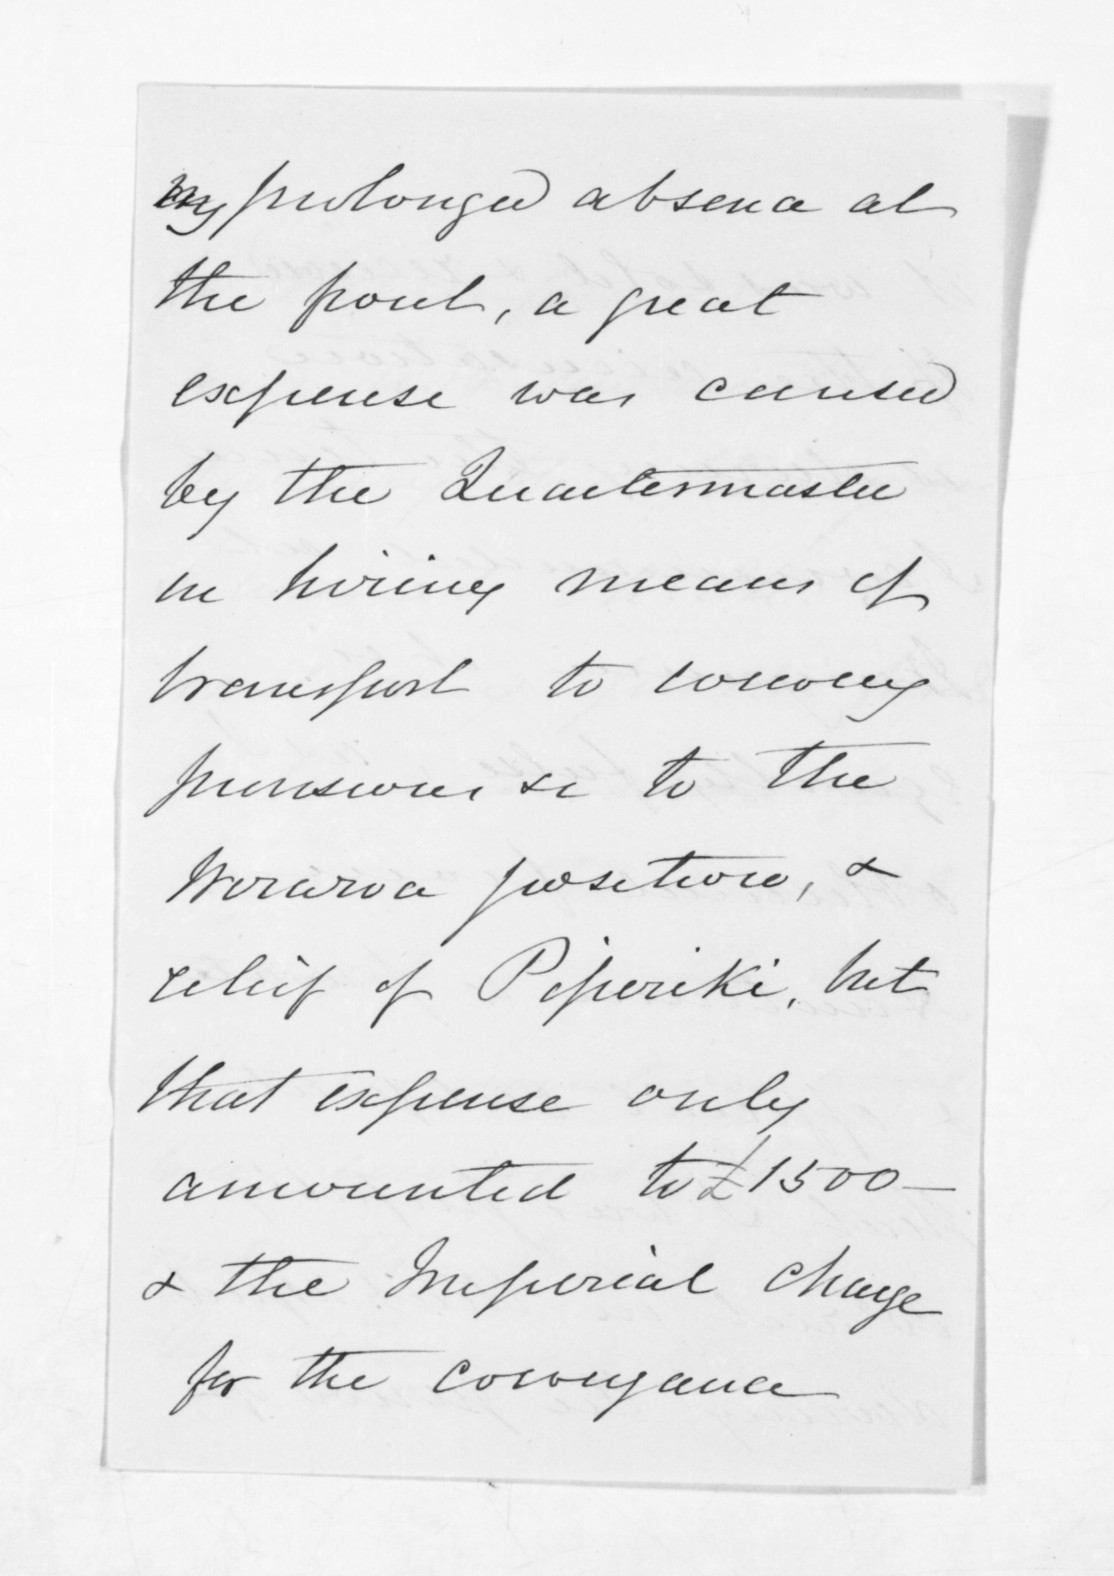 my prolonged absence at
the front, a great
expense was caused
by the Quartermaster
in hiring means of
transport to convey
provisions &c to the
Weraroa position, &
relief of Pipiriki, but
that expense only
amounted to £1500 —
& the Imperial charge
for the conveyance